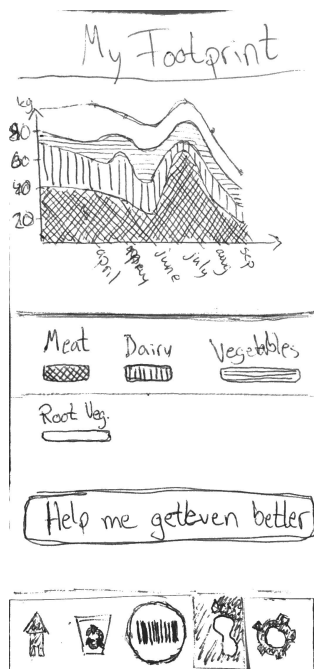 My Footprint
kg
80
60
40
20
april
may
june
july
aug
sep
Meat Dairy Vegetables
Root Veg.
Help me get even better